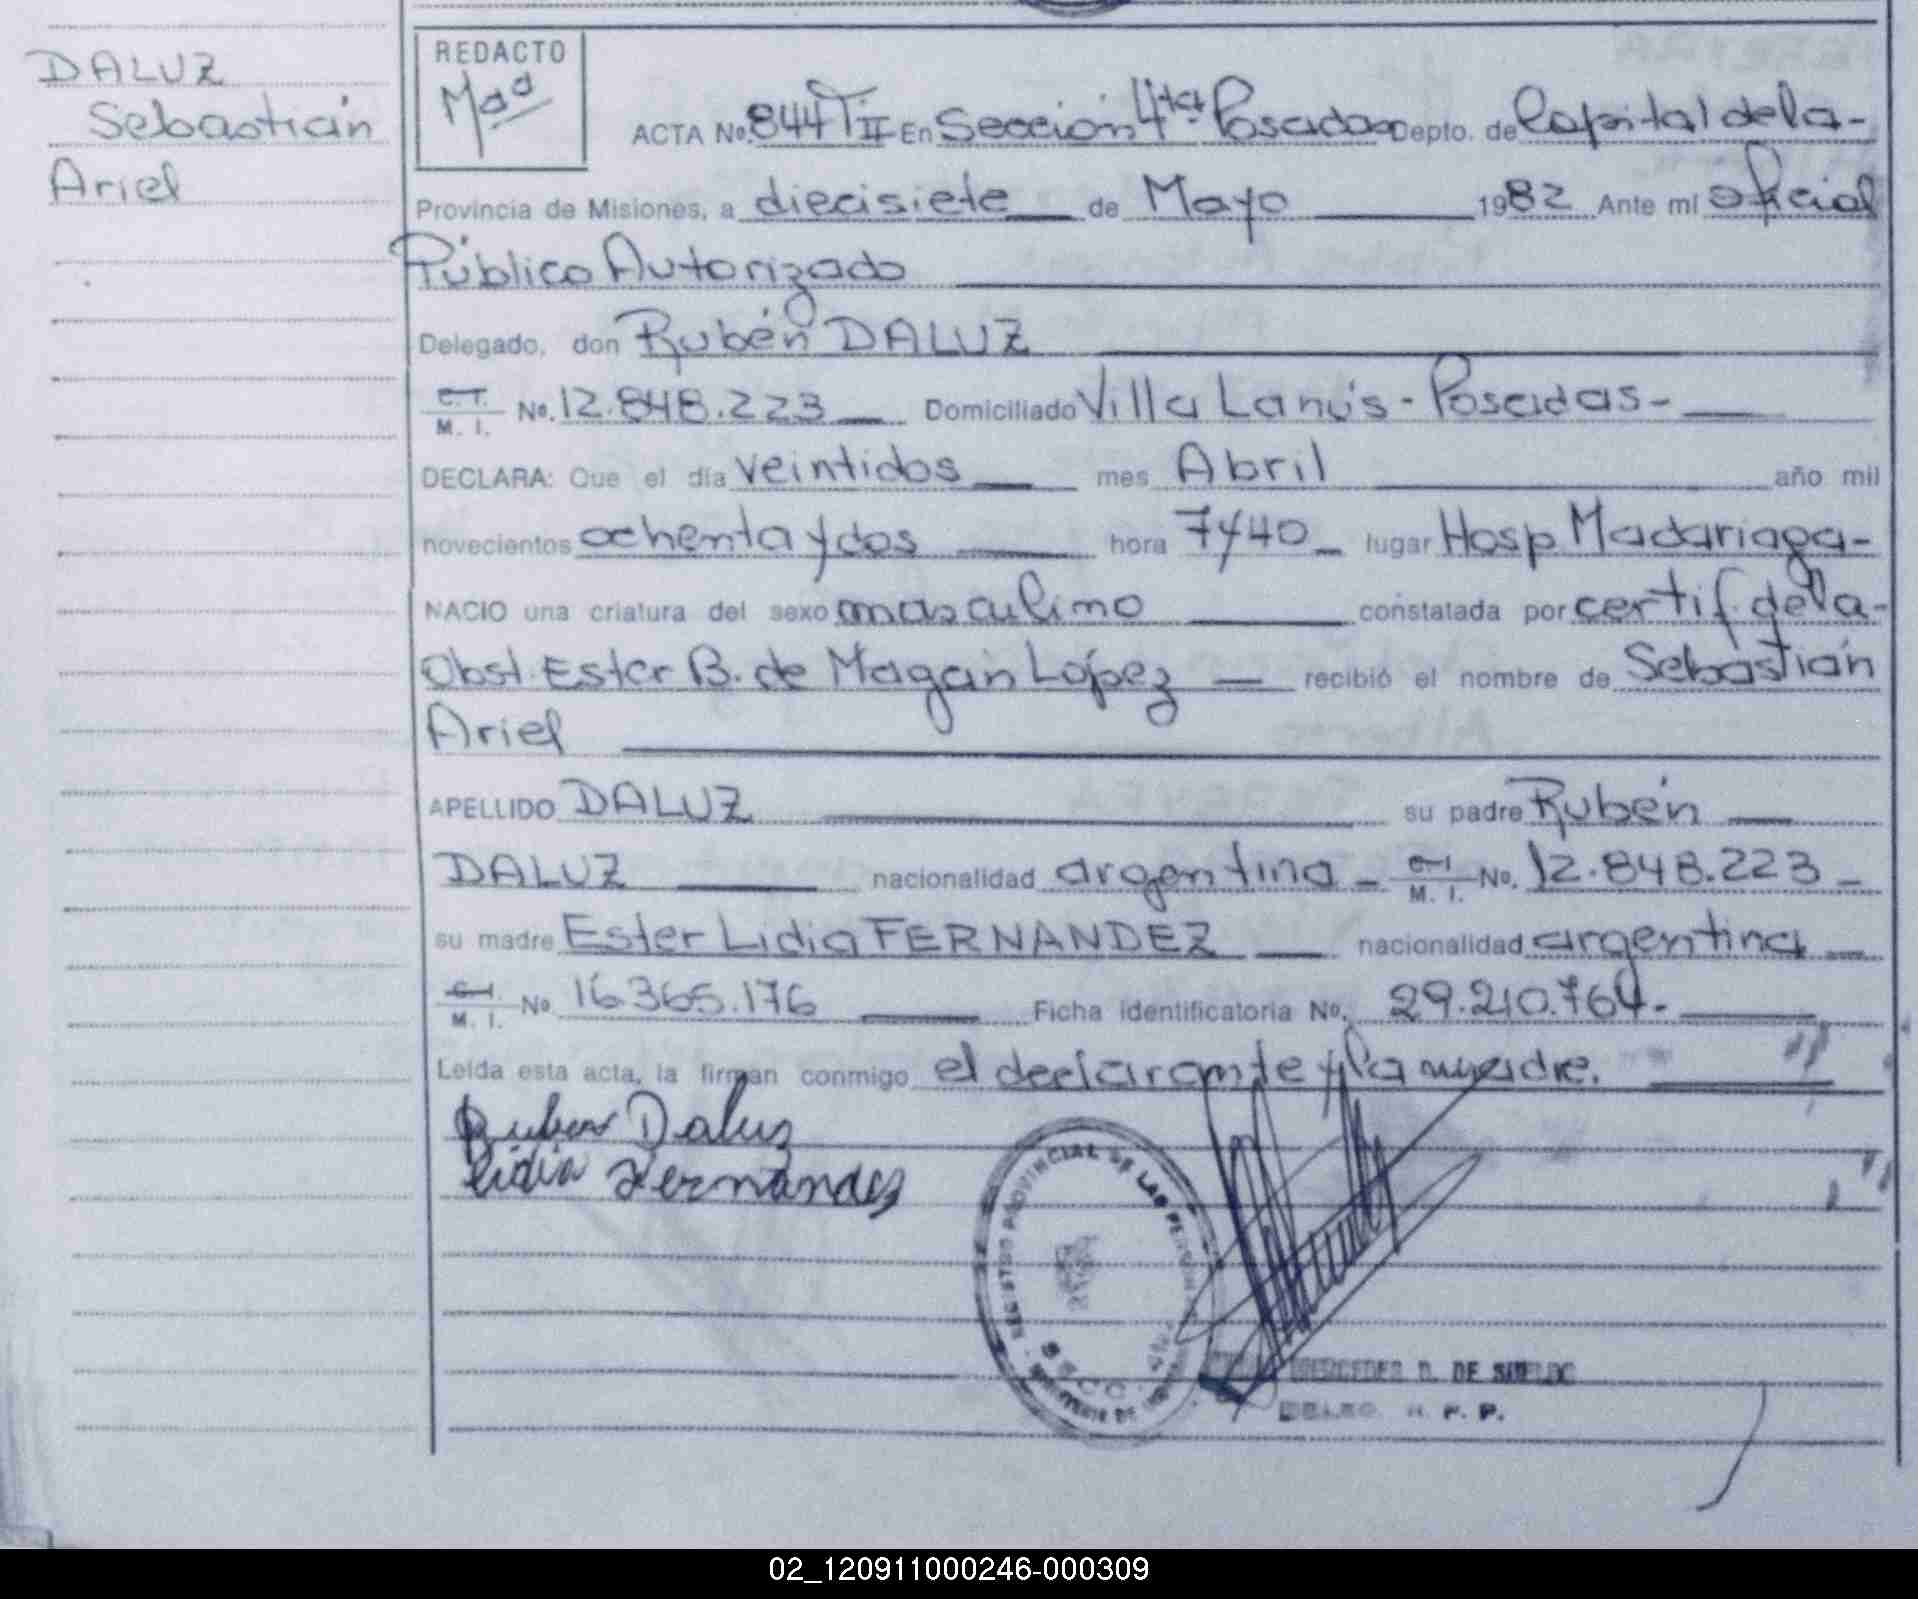 DALUZ
Sebastián
Ariel
REDACTO
ACTA No. 844 T II En Sección 4ta. Posadas Depto. de Capital de la-
Provincia de Misiones, a diecisiete de Mayo 1982 Ante mí oficial
Público Autorizado
Delegado, don Rubén DALUZ
C.I. M. I. No. 12.848.223 Domiciliado Villa Lanús - Posadas-
DECLARA: Que el día veintidos mes Abril año mil
novecientos ochenta y dos hora 7y40 lugar Hosp Madariaga-
NACIO una criatura del sexo masculino constatada por certif. de la-
Obst. Ester B. de Magan López recibió el nombre de Sebastián
Ariel
APELLIDO DALUZ su padre Rubén
DALUZ nacionalidad argentina - C.I. M. I. No. 12.848.223 -
su madre Ester Lidia FERNANDEZ nacionalidad argentina
C.I. M. I. No 16.365.176 Ficha identificatoria No. 29.210.764.-
Leída esta acta, la firman conmigo el declarante y la madre.
Ruben Daluz
Lidia Fernandez
REGISTRO PROVINCIAL DE LAS PERSONAS
SECC. 4ta
MERCEDES D. DE
R. P. P.
02_120911000246-000309